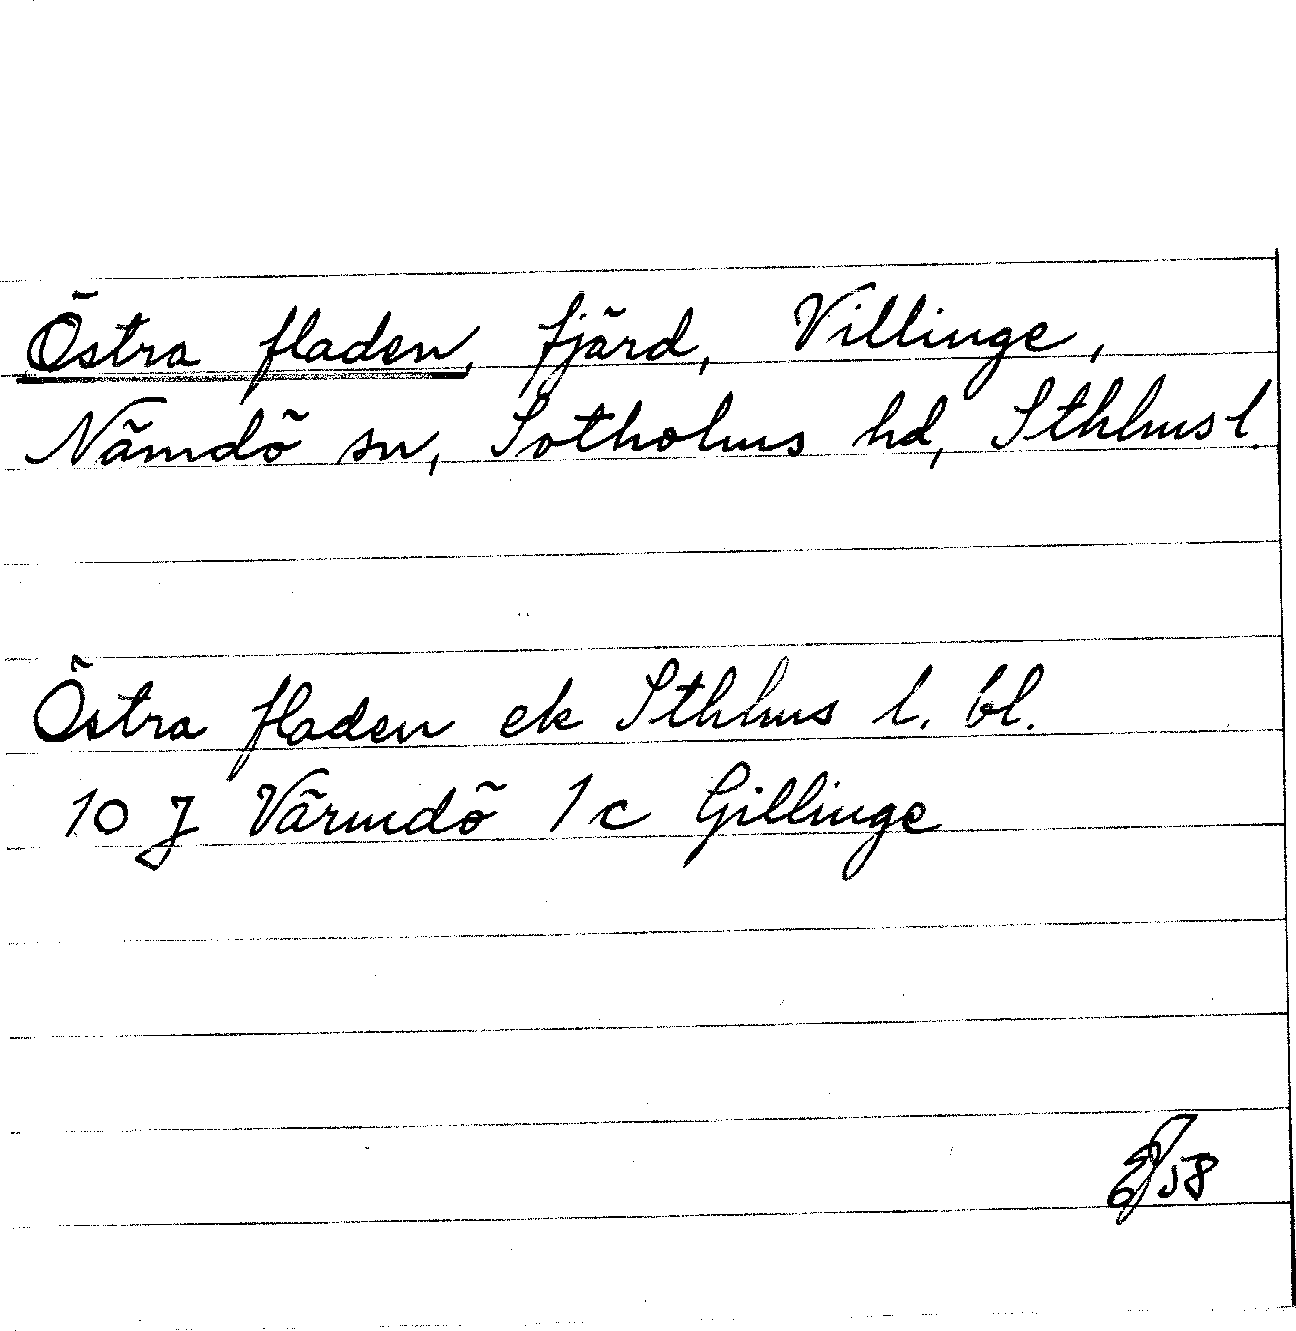 Östra fladen, fjärd, Villinge,
Nämdö sn, Sotholms hd, Sthlms l.
Östra fladen ek Sthlms l. bl.
10 J Värmdö 1c Gillinge
58